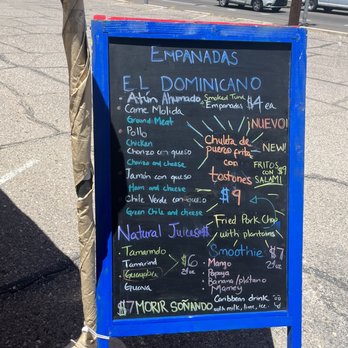 EMPANADAS
EL DOMINICANO
Atún Ahumado
Smoked Tuna
Empanadas
$4 ea
Carne Molida
Ground Meat
Pollo
Chicken
Chorizo con queso
Chorizo and cheese
Jamón con queso
Ham and cheese
Chile Verde con queso
Green Chile and cheese
¡NUEVO!
Chuleta de
puerco frita
con
tostones
$9
NEW!
FRITOS
CON $7
SALAMI
Fried Pork Chop
with plantains
Natural Juices
Tamarindo
Tamarind
Guayaba
Guava
$6
Smoothie
$7
Mango
Papaya
Banana/plátano
Mamey
$7 MORIR SOÑANDO
Caribbean drink
with milk, lime, ice